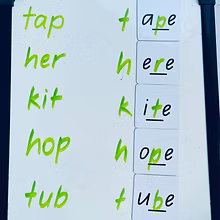 tap t ape
her h ere
kit k ite
hop h ope
tub t ube